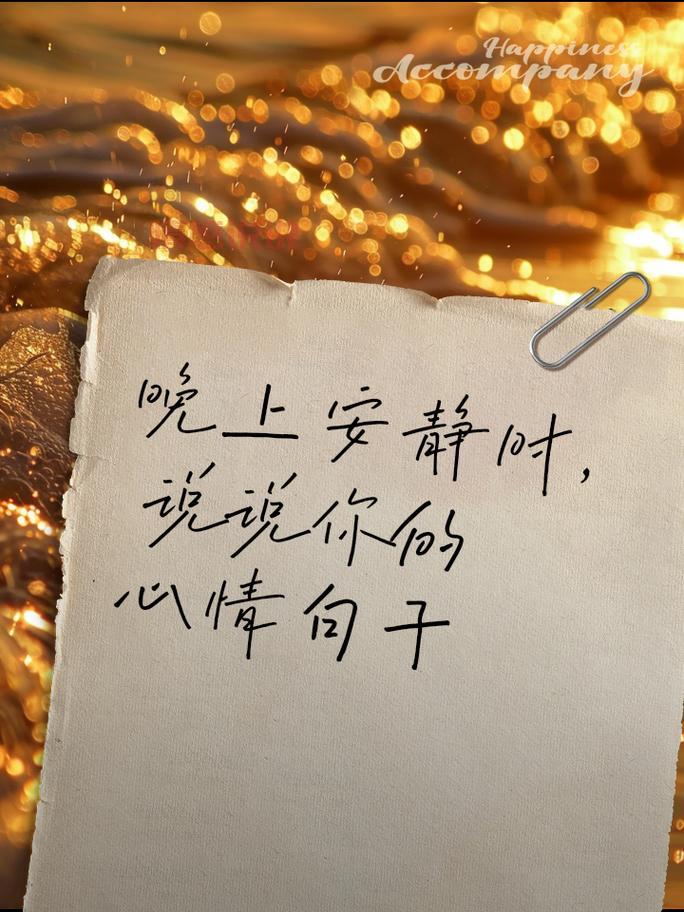 Happiness
Accompany
晚上安静时，
说说你的
心情句子